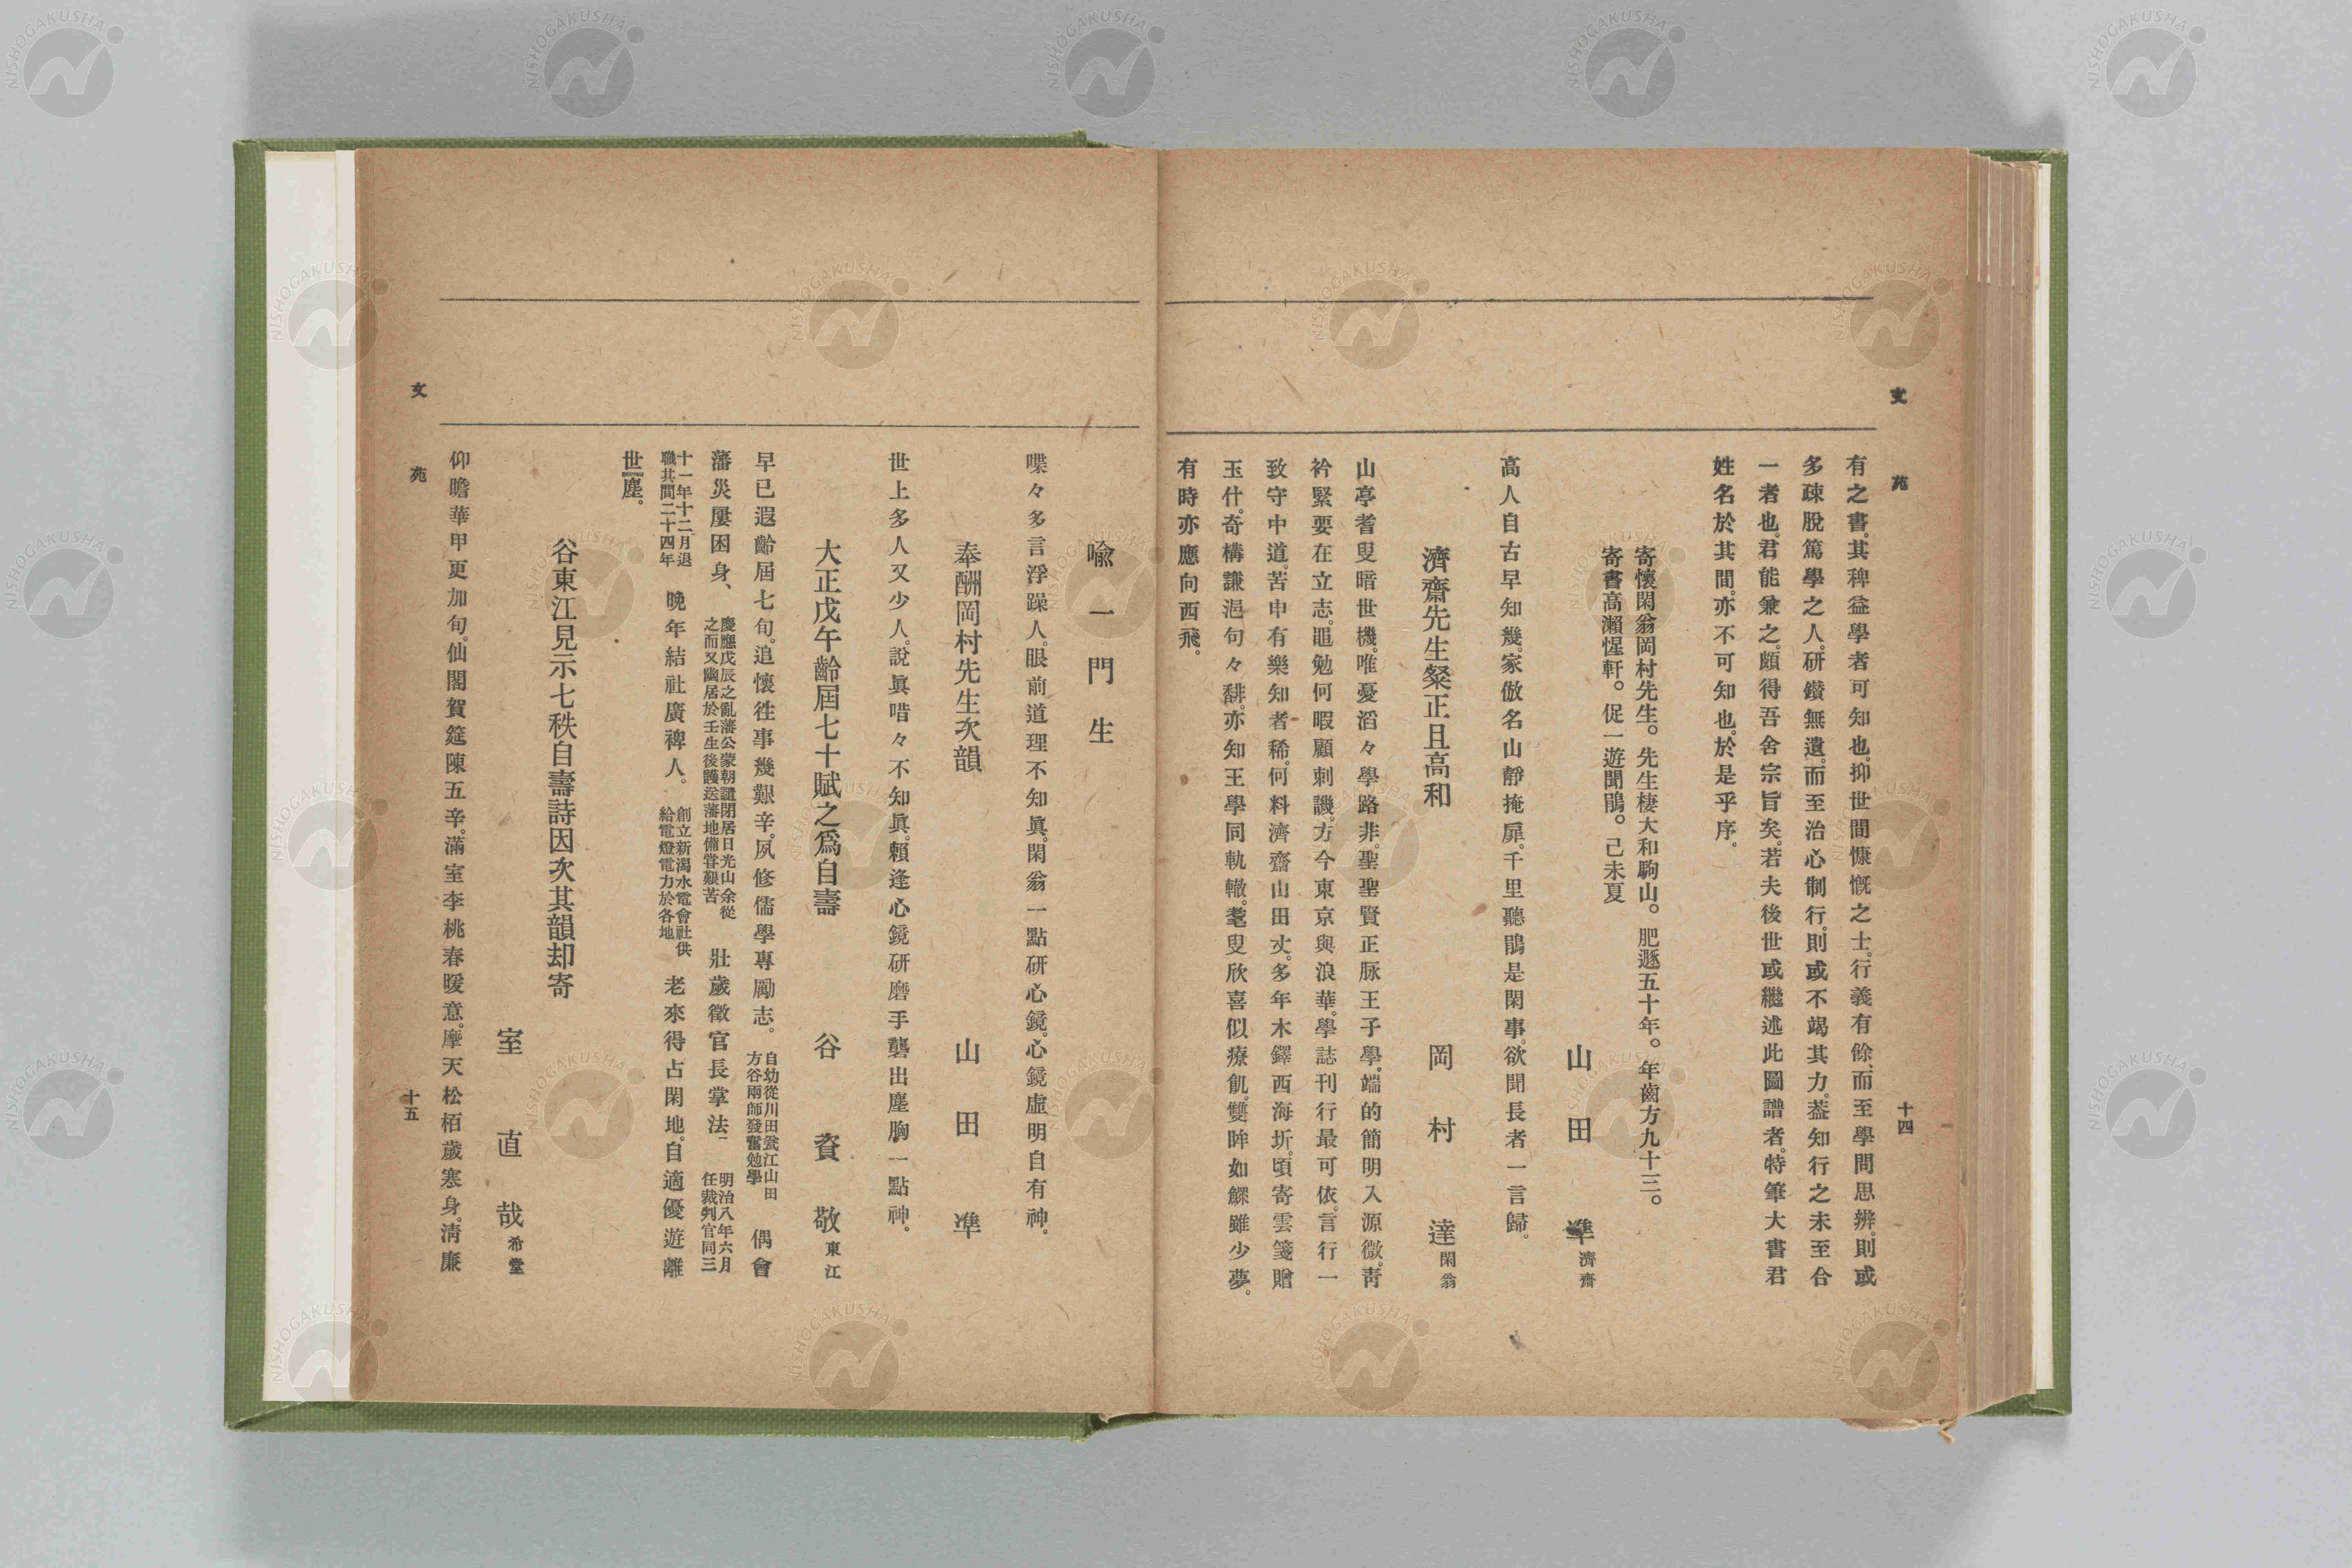 文苑
十四
有之書。其稗益學者可知也。抑世間慷慨之士。行義有餘、而至學問思辨。則或
多疎脫篤學之人。研鑚無遺。而至治心制行。則或不竭其力。葢知行之未至合
一者也。君能兼之。頗得吾舍宗旨矣。若夫後世或繼述此圖譜者。特筆大書君
姓名於其間。亦不可知也。於是乎序。
寄懷閑翁岡村先生。先生棲大和駒山。肥遯五十年。年齒方九十三。
寄書高瀨惺軒。促一遊聞鵑。己未夏
山田準濟齋
高人自古早知幾。家倣名山靜掩扉。千里聽鵑是閑事。欲聞長者一言歸。
濟齋先生粲正且高和
岡村達閑翁
山亭耆叟暗世機。唯憂滔々學路非。聖聖賢正脉王子學。端的簡明入源微。靑
衿緊要在立志。黽勉何暇顧刺譏。方今東京與浪華。學誌刊行最可依。言行一
致守中道。苦中有樂知者稀。何料濟齋山田丈。多年木鐸西海圻。頃寄雲箋贈
玉什。奇構謙浥句々馡。亦知王學同軌轍。耄叟欣喜似療飢。雙眸如鰥雖少夢。
有時亦應向西飛。
喩一門生
喋々多言浮躁人。眼前道理不知眞。閑翁一點研心鏡。心鏡虛明自有神。
奉酬岡村先生次韻
山田準
世上多人又少人。說眞唶々不知眞。賴逢心鏡硏磨手。礱出塵胸一點神。
大正戊午齡屆七十賦之爲自壽
谷資敬東江
早已遐齡屆七旬。追懷徃事幾艱辛。夙修儒學專勵志。自幼從川田甕江山田方谷兩師發奮勉學偶會
藩災屢困身、慶應戊辰之亂藩公蒙朝譴閉居日光山余從之而又幽居於壬生後護送藩地備甞艱苦壯歲徵官長掌法明治八年六月任裁判官同三
十一年十二月退職其間二十四年晚年結社廣裨人。創立新潟水電會社供給電燈電力於各地老來得占閑地。自適優遊離
世塵。
谷東江見示七秩自壽詩因次其韻却寄
室直哉希堂
仰瞻華甲更加旬。仙閣賀筵陳五辛。滿室李桃春暖意。摩天松栢歲寒身。淸廉
文苑
十五